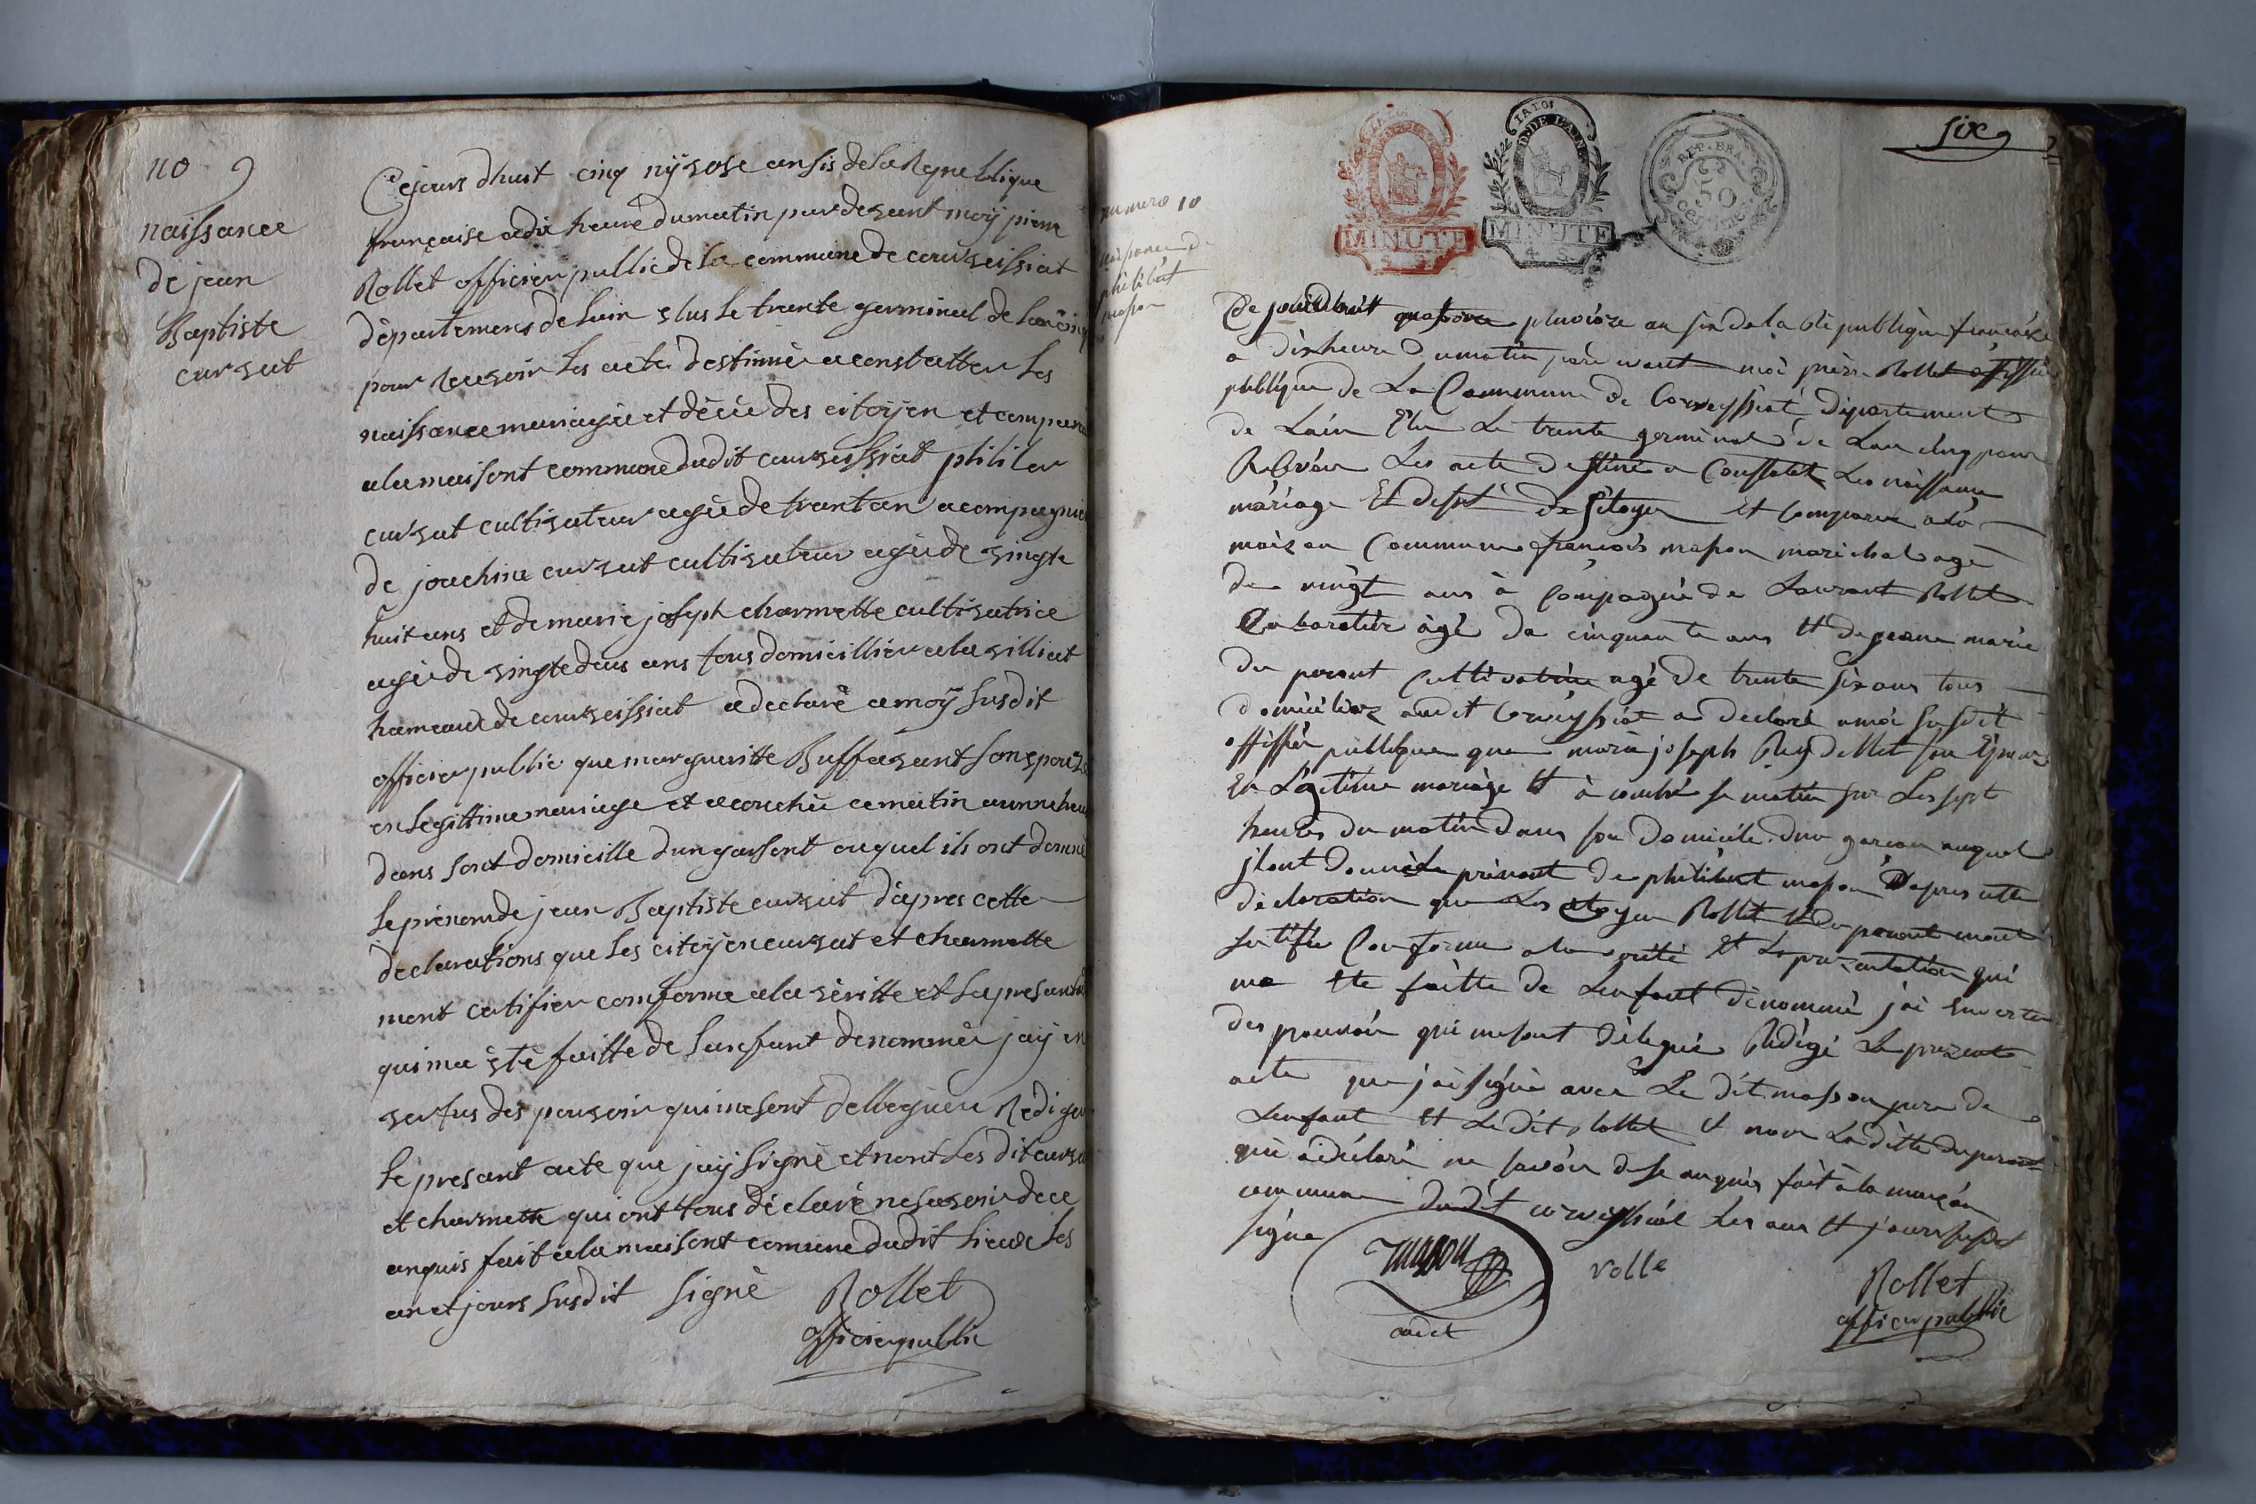 no 9
naissance
de jean
Baptiste
curvat
Cejours dhuit cinq nivose an sis de la Republique
française a dix heure du matin par devant moy pierre
Rollet officier public de la commune de courveissiat
departemens de lain elus le trante germinal de lan cinq
pour recevoir les acte destinné a constatter les
naissance mariage et décée des citoyen et comparu
a la maisont commune dudit courveissiat philiber
curvat cultivateur agée de trant an acompagnié
de joachin curvat cultivateur agée de vingte
huit ans et de marie joseph charmette cultivatrice
agée de vingtedeus ans tous domicillier a la villiat
hameaux de courveissiat a declaré a moy susdit
officier public que margueritte Buffavant son epouze
en legittime mariage et acouchée ce matin a unne heure
dans sont domicille dun garsont auquel ils ont donné
le prenom de jean Baptiste curvat d'apres cette
declarations que les citoyen curvat et charmette
mont certifier comforme a la véritte et la presantation
qui ma été faitte de lanfant denommée jay en
vertus des pouvoir qui me sont dellegueu Rediger
le presant acte que jay signé et nont les dit curvat
et charmette qui ont tous déclaré ne savoir de ce
anquis fait a la maisont comune dudit lieux les
an et jours susdit signé Rollet
officier public
numero 10
naissance de
philibert
masson
six
MINUTE
MINUTE
REP. FRA.
50
centimes
Ce jourdhuit quatorze pluvioze an six de la République francaize
a dix heure du matin pare devant moi pierre Rollet offissié
publique de La Commune de Corveyssiat Département
de Lain Elu Le trante germinal de Lan cinq pour
Recevoir Les acte destiné a Conssatet Les naissance
mariage Et dessé de sitoyen et Comparu a la
maizon Commune francois masson marichal agé
de vingt ans à Compagné de Laurant Rollet
Cabaratier âgé de cinquante ans Et de jeane marie
du parant Cultivatrice agé de trante six ans tous
domiciliez audit Corveyssiat a déclaré a moi susdit
offissié publique que marie joseph Reydellet son Epouze
En Légitime mariage Et à couché se matin sur Les sept
heures du matin dans son Domicile dun garson auquel
ilont Donné Le prénont de philibert masson Dapres cette
déclaration que Les citoyen Rollet Et duparant mont
sertifié Conforme a la vérité Et La prezantation qui
ma Eté faitte de Lenfant dénommé jai En vertu
des pouvoir qui me sont délégué Rédigé Le prezente
acte que jai signé avec Le dit masson pere de
Lenfant Et Le dit Rollet Et non La ditte duparant
qui a déclaré ne savoir de se anquis fait à la maizon
commune dudit corveyssiat Les ans Et jours susdit
signe masson cadet
rolle
Rollet
officier public